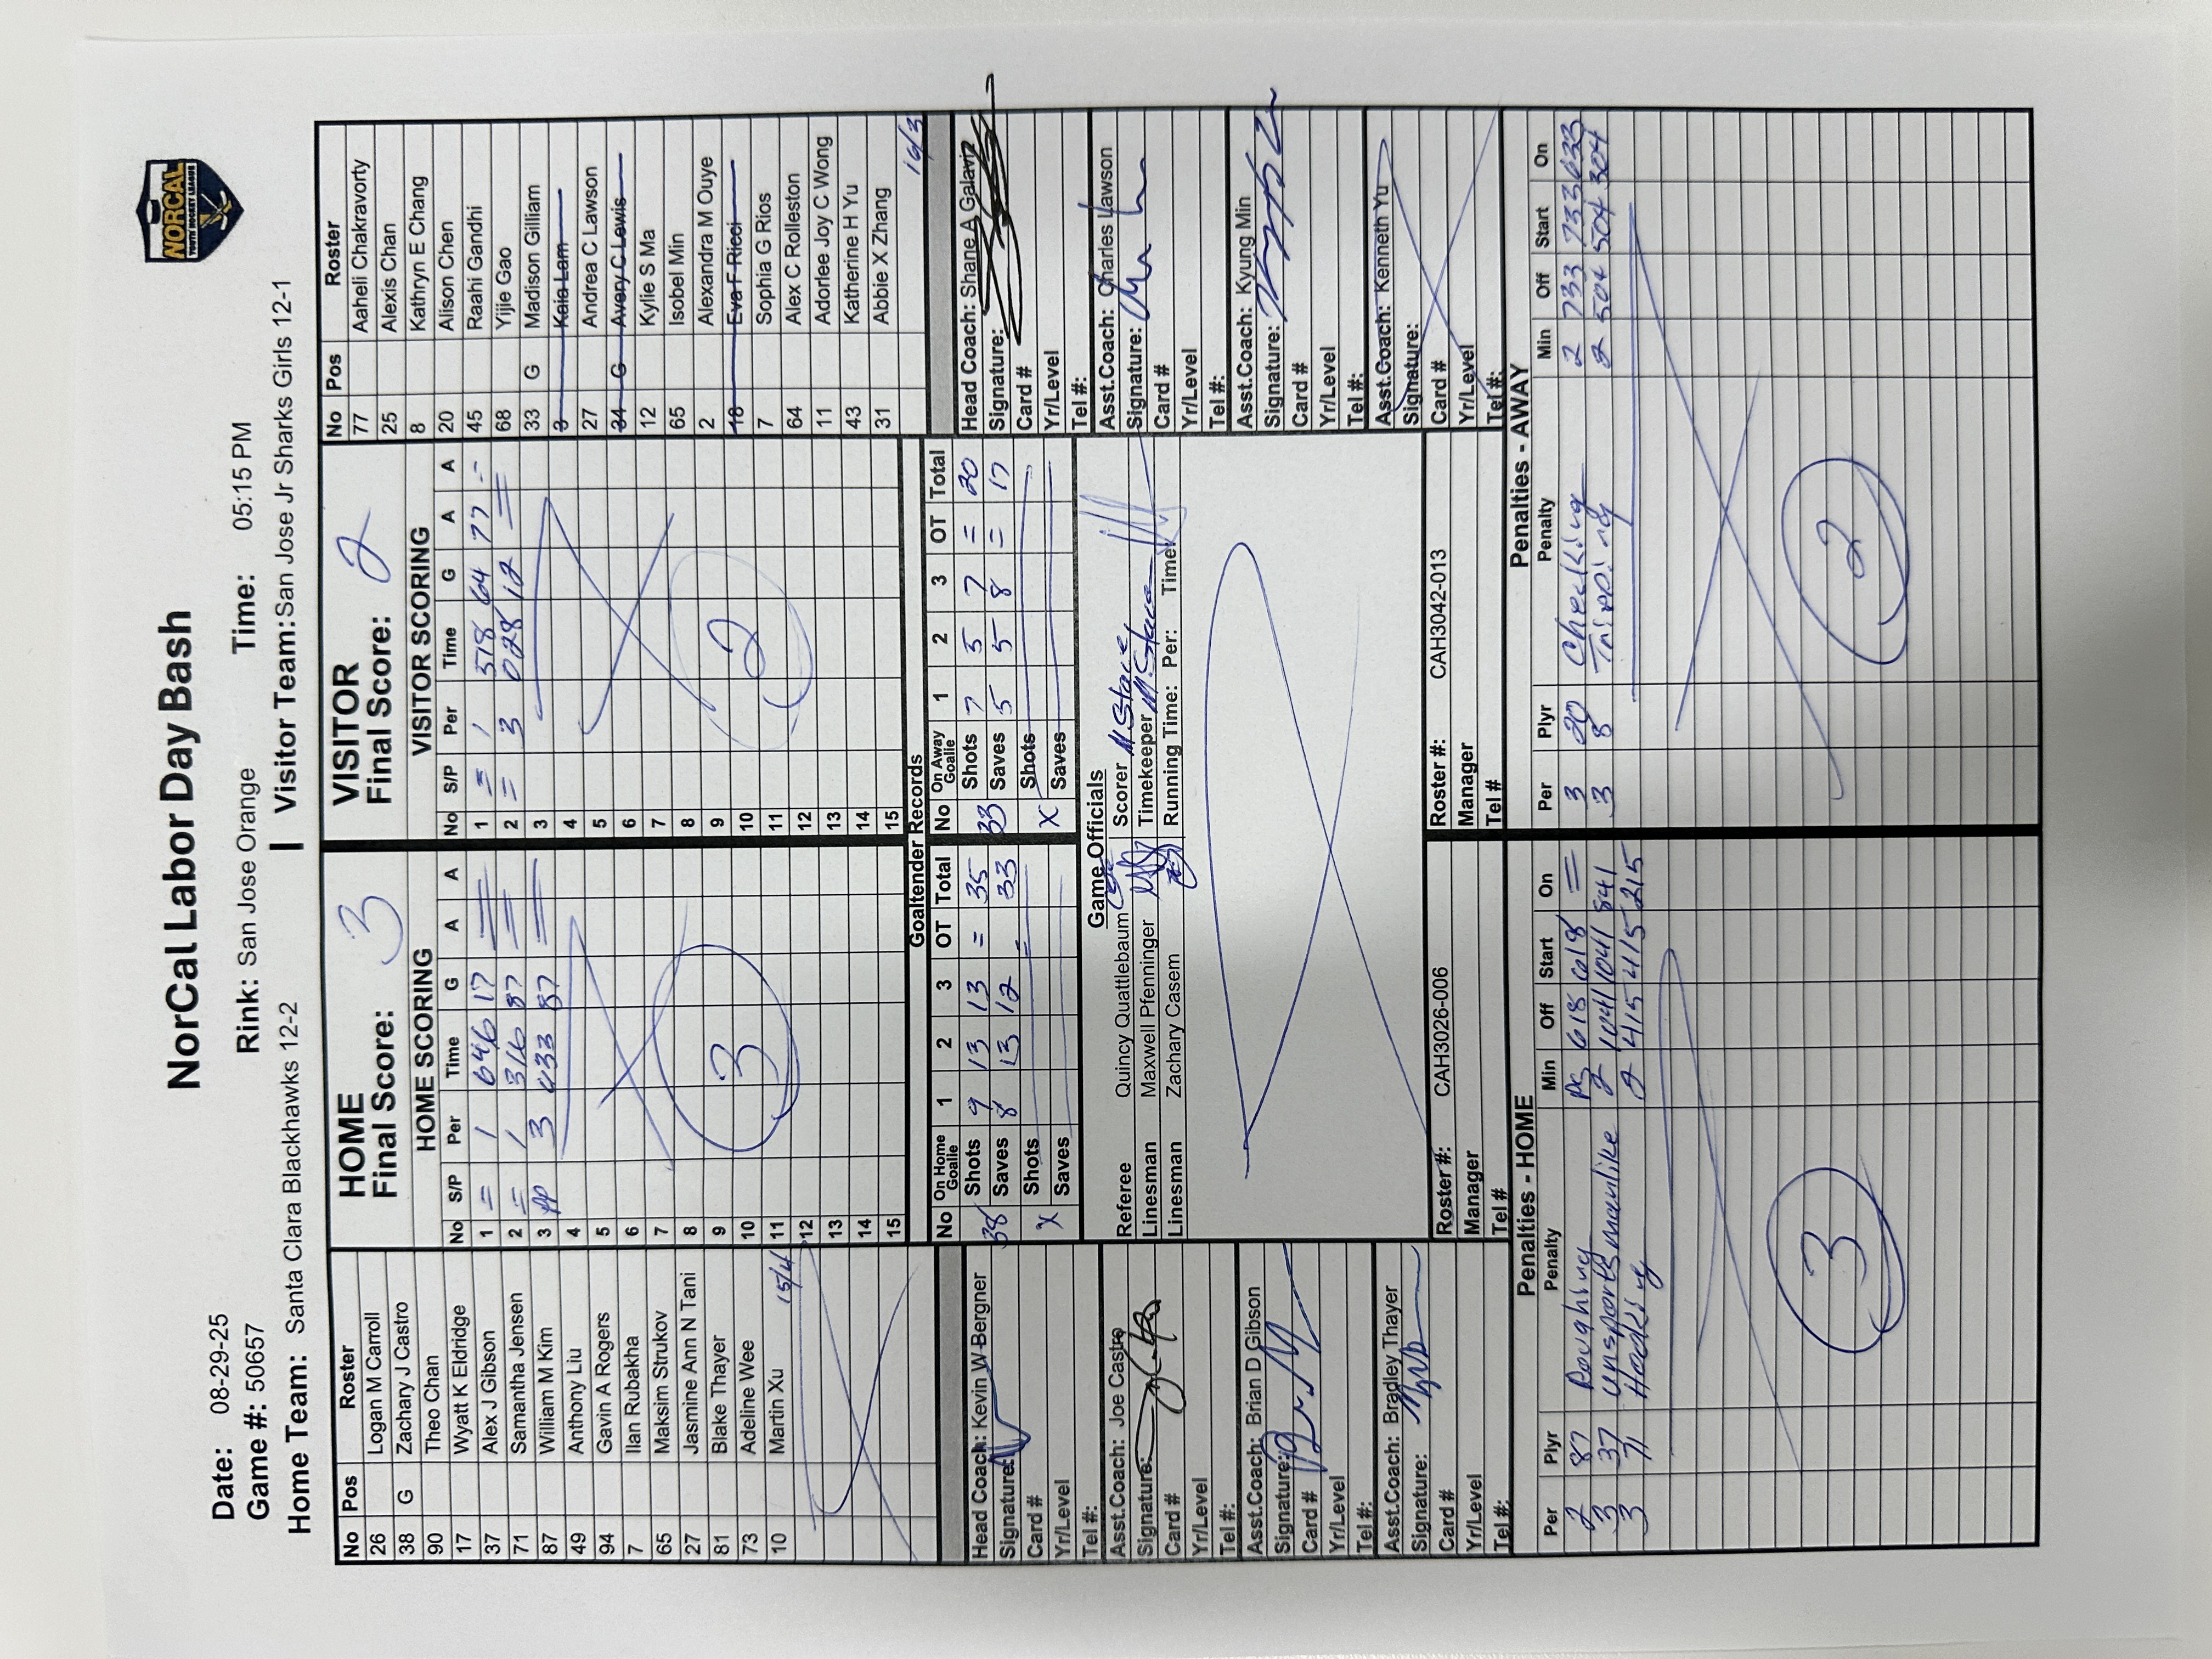 NORCAL
YOUTH HOCKEY LEAGUE
NorCal Labor Day Bash
Date: 08-29-25 Rink: San Jose Orange Time: 05:15 PM
Game #: 50657
Home Team: Santa Clara Blackhawks 12-2 | Visitor Team: San Jose Jr Sharks Girls 12-1
No Pos Roster
26 Logan M Carroll
38 G Zachary J Castro
90 Theo Chan
17 Wyatt K Eldridge
37 Alex J Gibson
71 Samantha Jensen
87 William M Kim
49 Anthony Liu
94 Gavin A Rogers
7 Ilan Rubakha
65 Maksim Strukov
27 Jasmine Ann N Tani
81 Blake Thayer
73 Adeline Wee
10 Martin Xu
15/4
HOME
Final Score: 3
HOME SCORING
No S/P Per Time G A A
1 = 1 646 17
2 = 1 316 87
3 PP 3 033 87
4
5
6
7
8
9
10
11
12
13
14
15
3
VISITOR
Final Score: 2
VISITOR SCORING
No S/P Per Time G A A
1 = 1 518 64 77 -
2 = 3 028 12
3
4
5
6
7
8
9
10
11
12
13
14
15
2
No Pos Roster
77 Aaheli Chakravorty
25 Alexis Chan
8 Kathryn E Chang
20 Alison Chen
45 Raahi Gandhi
68 Yijie Gao
33 G Madison Gilliam
3 Kaia Lam
27 Andrea C Lawson
34 G Avery C Lewis
12 Kylie S Ma
65 Isobel Min
2 Alexandra M Ouye
18 Eva F Ricci
7 Sophia G Rios
64 Alex C Rolleston
11 Adorlee Joy C Wong
43 Katherine H Yu
31 Abbie X Zhang
16/3
Goaltender Records
No On Home Goalie 1 2 3 OT Total
38 Shots 9 13 13 = 35
Saves 8 13 12 33
X Shots
Saves
No On Away Goalie 1 2 3 OT Total
33 Shots 7 5 7 = 20
Saves 5 5 8 = 17
X Shots
Saves
Game Officials
Referee Quincy Quattlebaum
Linesman Maxwell Pfenninger
Linesman Zachary Casem
Scorer M Stace
Timekeeper M Stace
Running Time: Per: Time:
Head Coach: Kevin W Bergner
Signature:
Card #
Yr/Level
Tel #:
Asst.Coach: Joe Castro
Signature:
Card #
Yr/Level
Tel #:
Asst.Coach: Brian D Gibson
Signature:
Card #
Yr/Level
Tel #:
Asst.Coach: Bradley Thayer
Signature:
Card #
Yr/Level
Tel #:
Roster #: CAH3026-006
Manager
Tel #
Roster #: CAH3042-013
Manager
Tel #
Head Coach: Shane A Galaviz
Signature:
Card #
Yr/Level
Tel #:
Asst.Coach: Charles Lawson
Signature:
Card #
Yr/Level
Tel #:
Asst.Coach: Kyung Min
Signature:
Card #
Yr/Level
Tel #:
Asst.Coach: Kenneth Yu
Signature:
Card #
Yr/Level
Tel #:
Penalties - HOME
Per Plyr Penalty Min Off Start On
2 87 Roughing PS 618 618 =
3 37 Unsportsmanlike 2 1041 1041 841
3 71 Hooking 2 415 415 215
3
Penalties - AWAY
Per Plyr Penalty Min Off Start On
3 20 Checking 2 733 733
3 8 Tripping 2 504 504 304
2